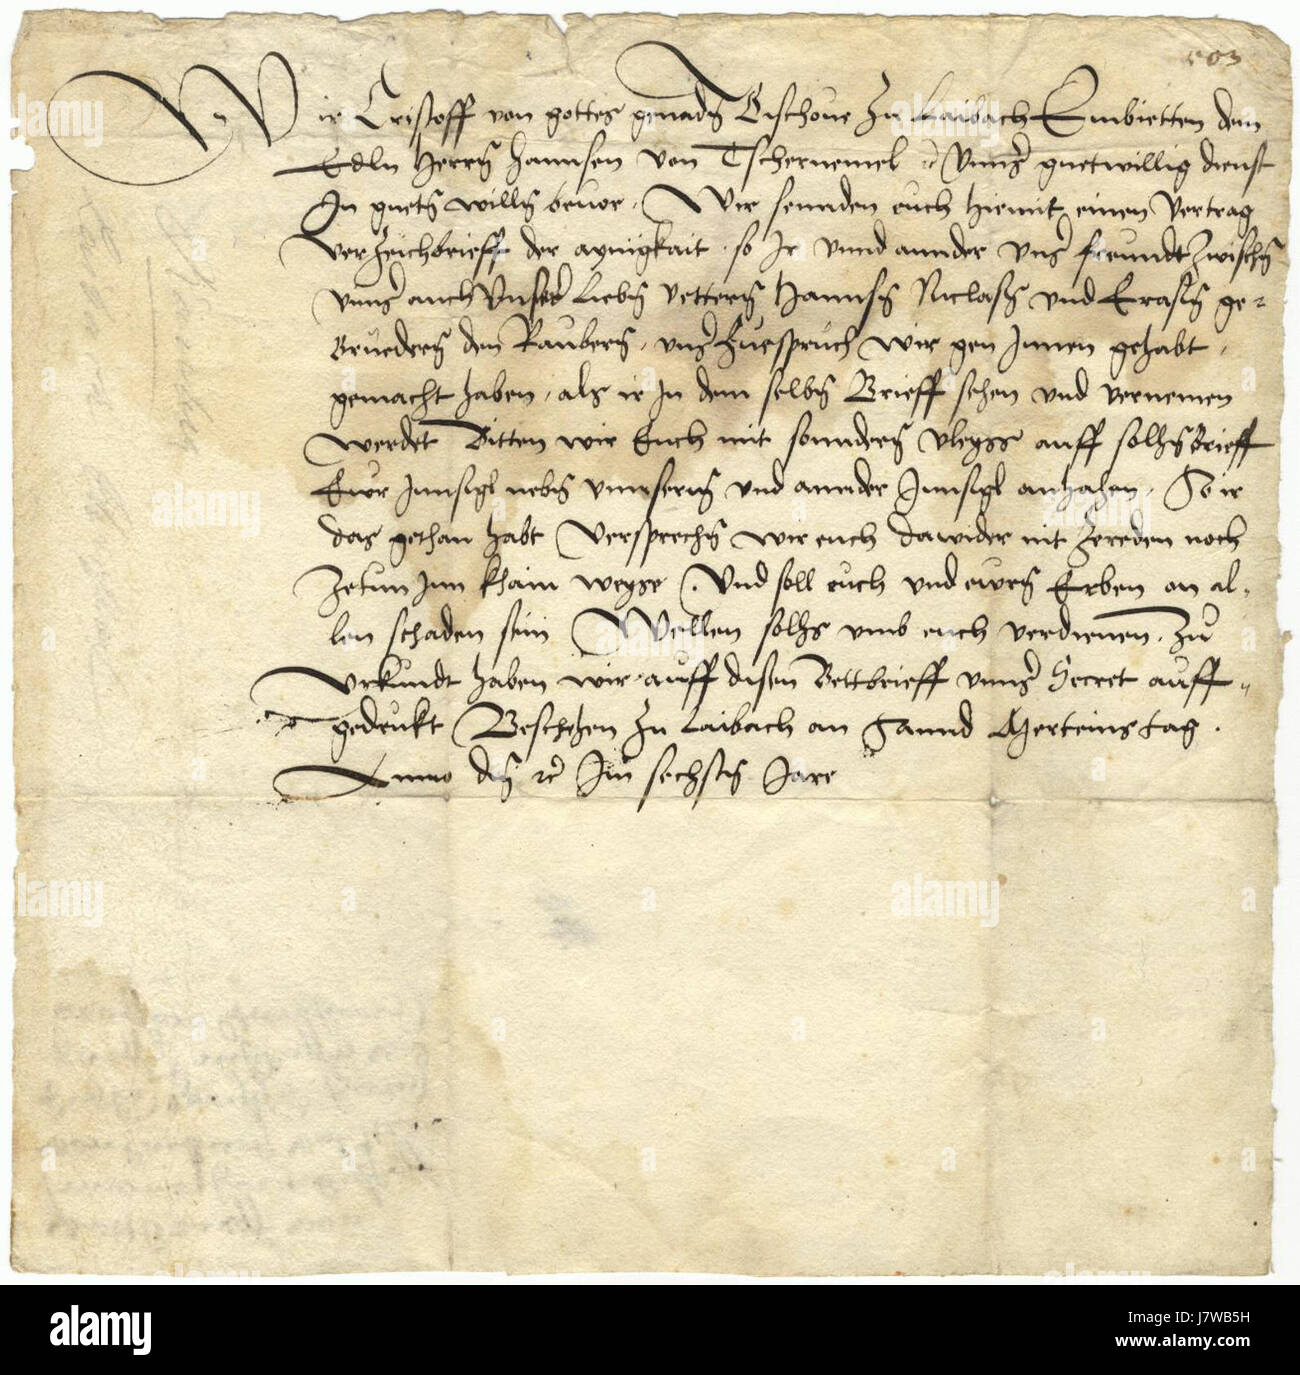 503
Wir Cristoff von gottes genadn Bischove zu Laibach Embietten dem
Edln Herrn Hannsen von Tschernemel etc unnser guetwillig dienst
In guetn willn bevor. Wir sennden euch hiemit einen Vertrag
verzeichbrieff der aynigkait so Ir unnd annder uns freundt zwischn
unns auch unser liebn vettern Hannsn Niclasn und Erasm ge-
bruedern den Raubern, uns zuespruch wir gen Innen gehabt,
gemacht haben, als ir In dem selbn Brieff sehen und vernemen
werdet Bitten wir Euch mit sonndern vleyss auff solhn brieff
Ewr Innsigl nebn unnserm und annder Innsigl anhahen, So ir
das gethan habt Versprechn wir euch dawider nit zereden noch
zetun Inn khain weyse. Und soll euch und ewrn Erben an al-
len schaden sein Wellen solhs umb euch verdienen. Zu
Urkundt haben wir auff disen Bettbrieff unnser Secret auff-
gedrukt Beschehen zu Laibach an Sannd Merteins tag.
Anno dn etc Im sechstn Jare
alamy
a
alamy
Image ID: J7WB5H
www.alamy.com